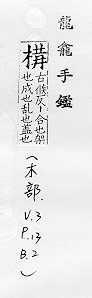 龍龕手鑑
構
古候反合也架
也成也乱也蓋也
(木部. V.3 P.13 B.2)